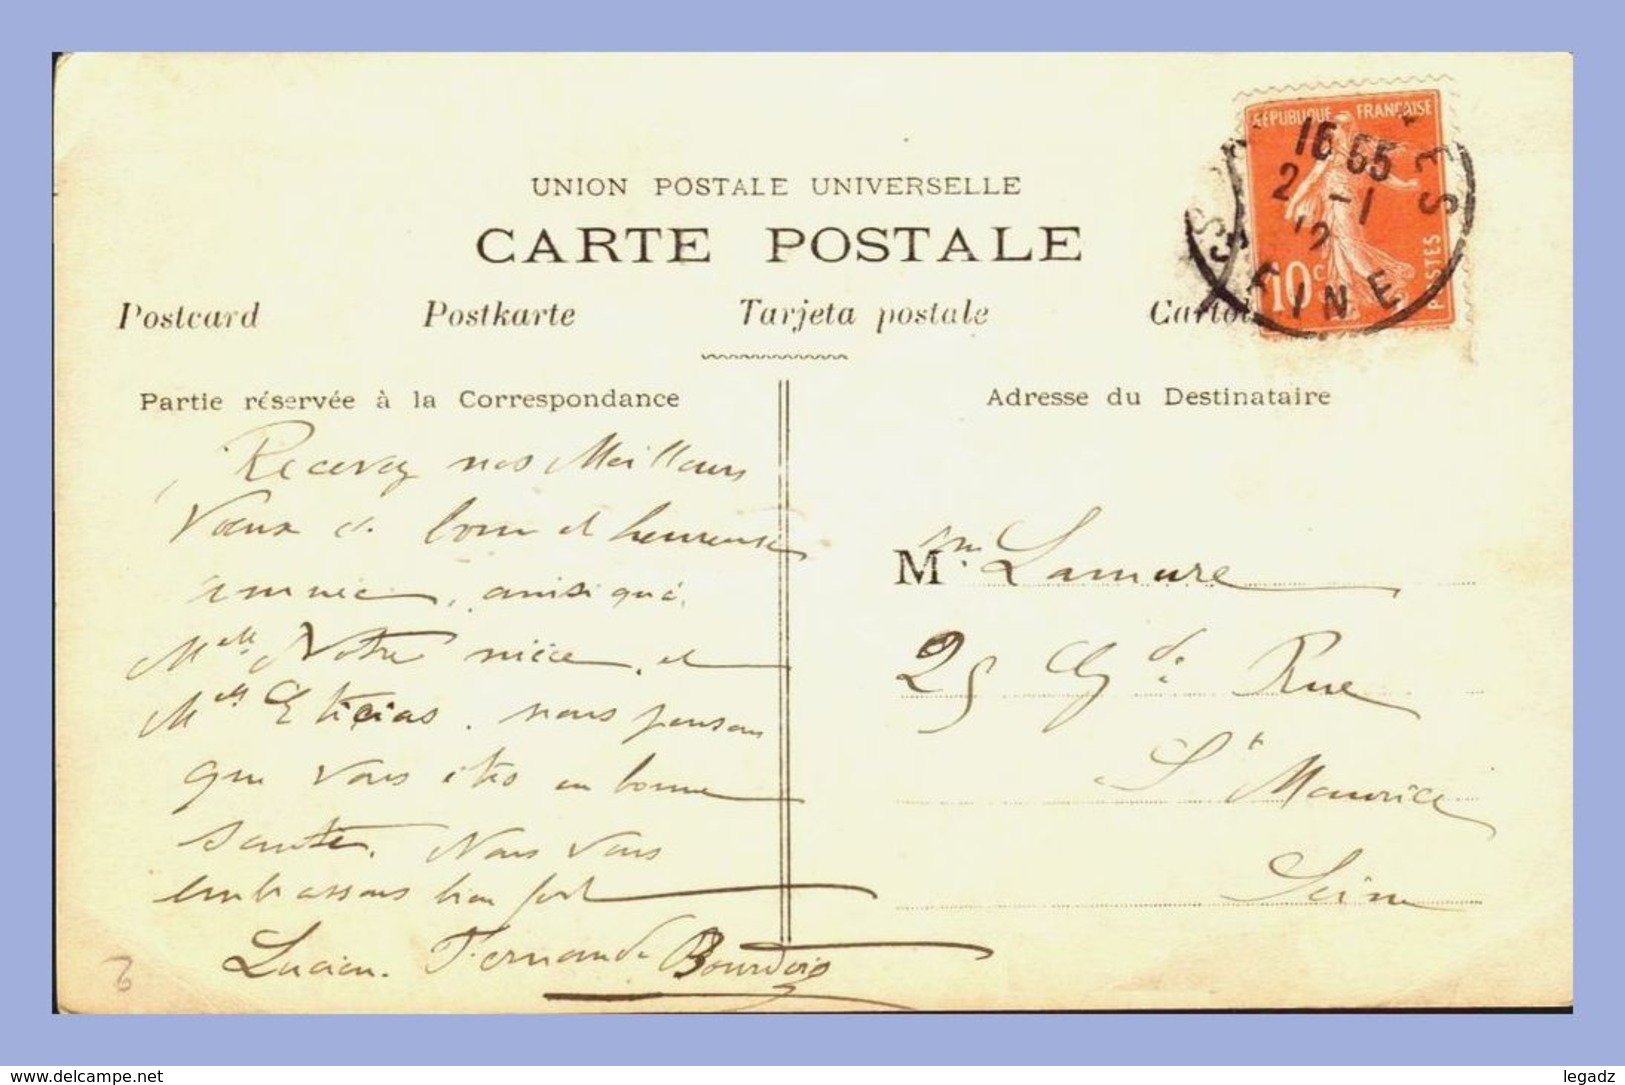 RÉPUBLIQUE FRANÇAISE
16 55
2 -1
12
SEINE
10c
POSTES
UNION POSTALE UNIVERSELLE
CARTE POSTALE
Postcard Postkarte Tarjeta postale
Partie réservée à la Correspondance
Recevez nos Meilleurs
Vœux de bonne et heureuse
année, ainsi que
Melle Votre nièce, et
Melle
nous pensons
que vous êtes en bonne
santé. Nous vous
embrassons bien fort
Lucien. Fernande Bourdois
Adresse du Destinataire
Mme Lamure
25 Gde Rue
St Maurice
Seine
www.delcampe.net
legadz